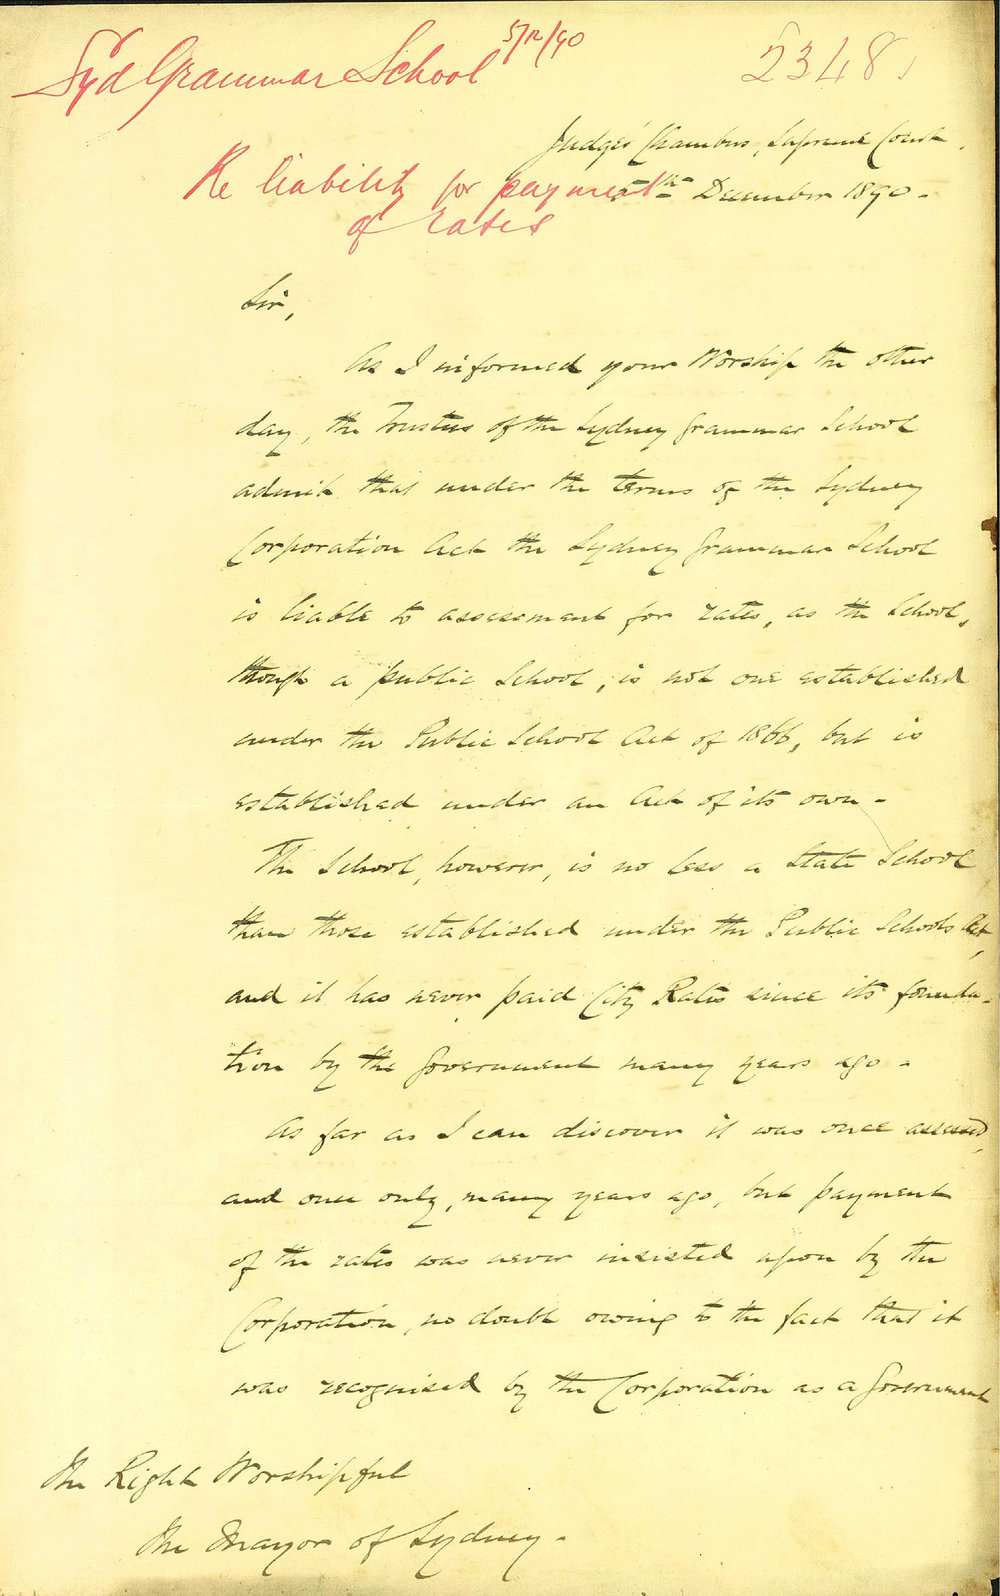 Syd Grammar School 5/12/90
2348
Judges' Chambers, Supreme Court.
Re liability for payment
5th December 1890 -
of rates
Sir,
As I informed your Worship the other
day, the Trustees of the Sydney Grammar School
admit that under the terms of the Sydney
Corporation Act the Sydney Grammar School
is liable to assessment for rates, as the School,
though a public School, is not one established
under the Public School Act of 1866, but is
established under an Act of its own -
The School, however, is no less a State School
than those established under the Public Schools Act,
and it has never paid City Rates since its founda-
tion by the Government many years ago -
As far as I can discover it was once assessed,
and once only, many years ago, but payment
of the rates was never insisted upon by the
Corporation, no doubt owing to the fact that it
was recognised by the Corporation as a Government
The Right Worshipful
The Mayor of Sydney -